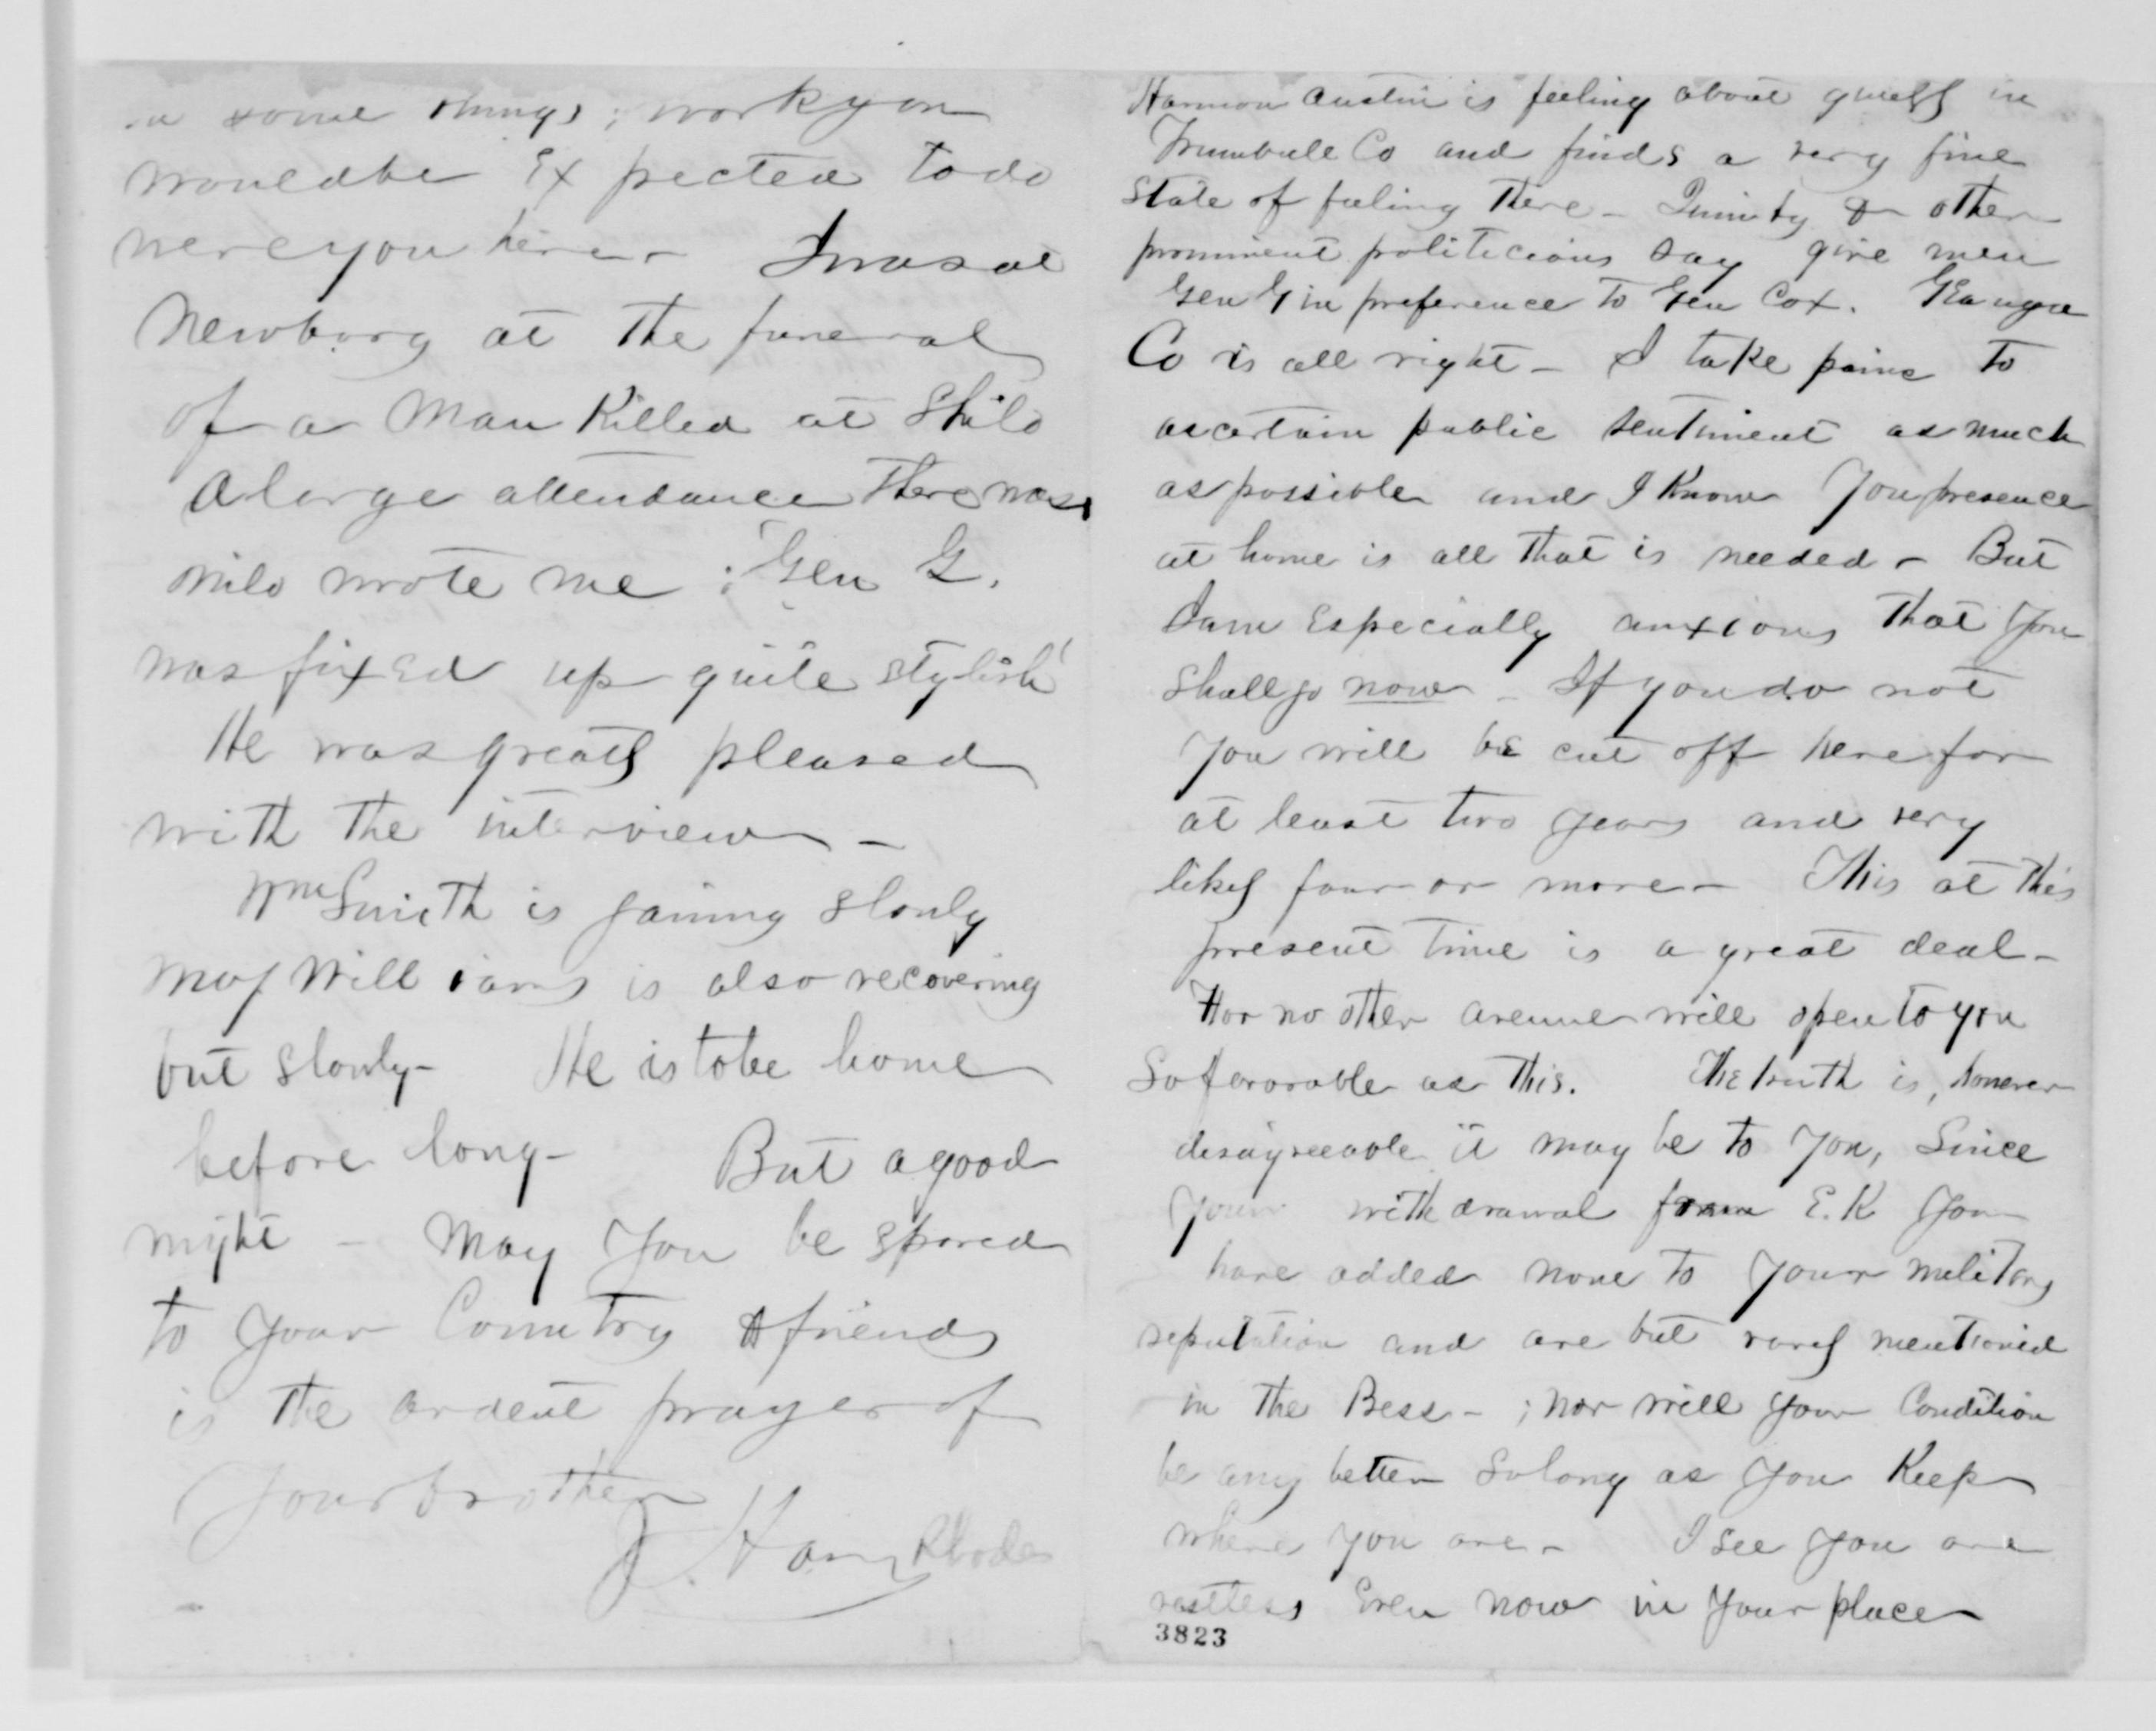 in some things; work you
would be Expected to do
were you here - I was at
Newburg at the funeral
of a man Killed at Shilo
A large attendance There was
Milo wrote me: "Gen G.
was fixed up quite stylish"
He was greatly pleased
with the interview -
Wm Smith is gaining slowly
Maj Williams is also recovering
but slowly - He is to be home
before long - But a good
night - May You be spared
to your Country & friends
is the ardent prayer of
Your brother
J. Harry Rhodes
Harmon Austin is feeling about quietly in
Trumbull Co and finds a very fine
State of feeling There - & other
prominent politicians say give men
Gen G in preference to Gen Cox. Geauga
Co is all right - I take pains to
ascertain public sentiment as much
as possible and I Know You presence
at home is all that is needed - But
I am Especially anxious That You
shall go now - If you do not
You will be cut off here for
at least two years and very
likely four or more - This at this
present time is a great deal -
For no other avenue will open to you
So favorable as This. The truth is, however
disagreeable it may be to You, Since
Your withdrawal from E. K You
have added none to Your military
reputation and are but rarely mentioned
in the Press - ; nor will your Condition
be any better so long as you Keep
where you are - I see you are
restless Even now in Your place
3823